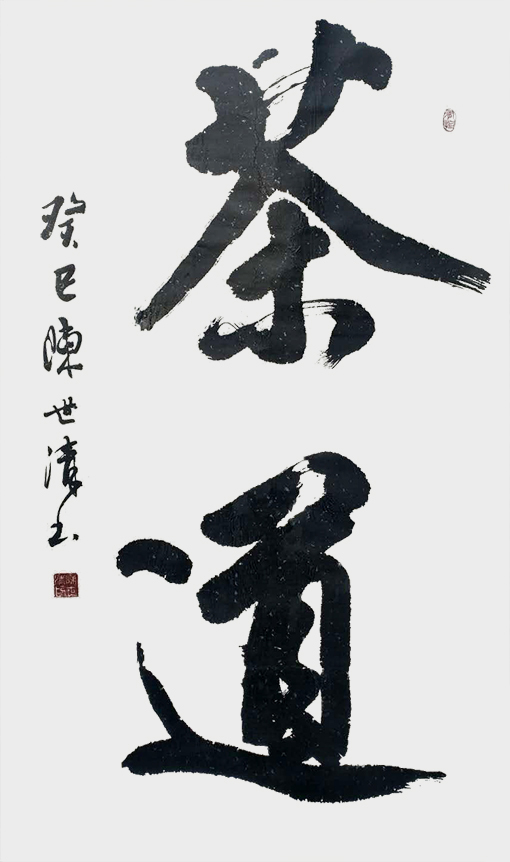 茶道
癸巳陳世清书